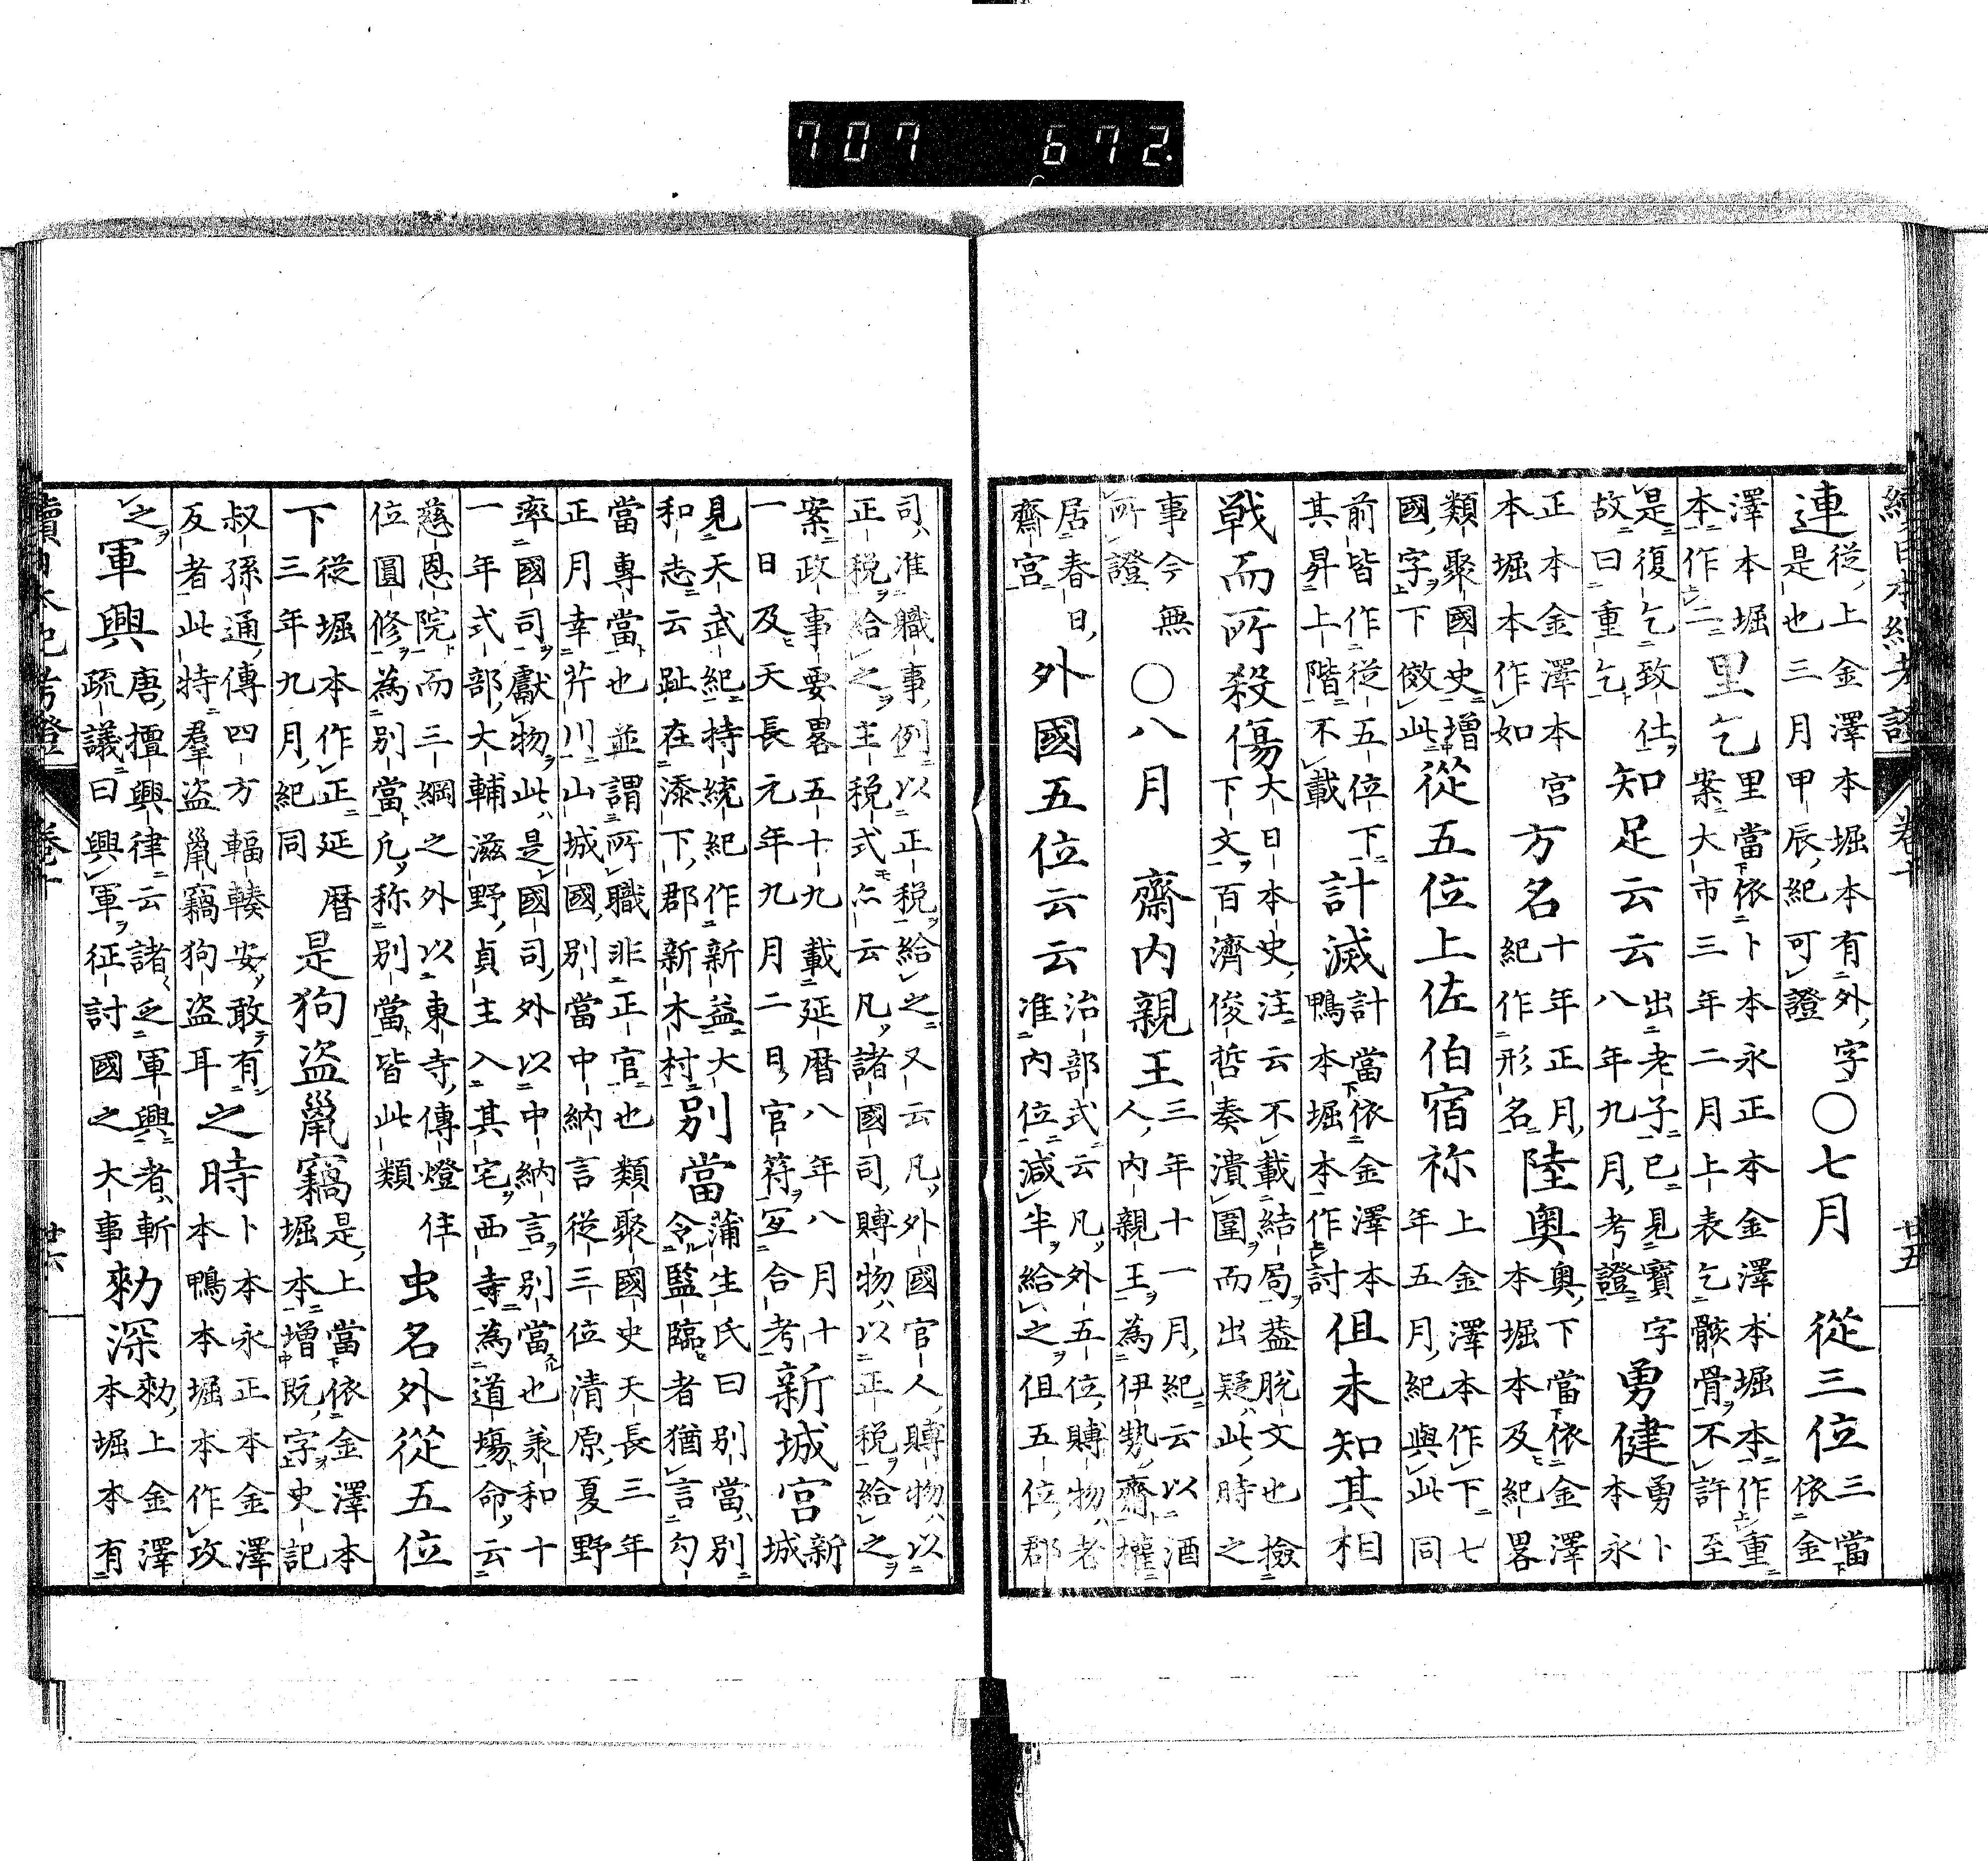 707 672.
續日本紀考證 卷十 廿五
連從上金澤本堀本有外字
是也三月甲辰紀可證〇七月 從三位三當
依金
澤本堀本永正本金澤本堀本作重
本作二里乞里當依卜本永正本金澤本堀本作重
案大市三年二月上表乞骸骨不許至
是復乞致仕
故曰重乞知足云云出老子已見寶字
八年九月考證勇健勇卜
本永
正本金澤本
本堀本作如宮方名十年正月
紀作形名陸奧奧下當依金澤
本堀本及紀畧
類聚國史增
國字下傚此從五位上佐伯宿祢上金澤本作下七
年五月紀與此同
前皆作從五位下
其昇上階不載計滅計當依金澤本
鴨本堀本作討伹未知其相
戦而所殺傷大日本史注云不載結局蓋脫文也撿
下文百濟俊哲奏潰圍而出疑此時之
事今無
所證〇八月 齋內親王三年十一月紀云以酒
人內親王為伊勢齋權
居春日
齋宮外國五位云云治部式云凡外五位賻物老
准內位減半給之伹五位郡
司准職事例以正税給之又云凡外國官人賻物以
正税給之主税式亦云凡諸國司賻物以正税給之
案政事要畧五十九載延暦八年八月十
一日及天長元年九月二日官符宜合考新城宮新
城
見天武紀持統紀作新益大
和志云趾在添下郡新木村別當蒲生氏曰別當別
令監臨者猶言勾
當專當也並謂所職非正官也類聚國史天長三年
正月幸芹川山城國別當中納言從三位清原夏野
率國司獻物此是國司外以中納言別當也兼和十
一年式部大輔滋野貞主入其宅西寺為道塲命云
慈恩院而三綱之外以東寺傳燈住
位圓修為別當凡称別當皆此類虫名外從五位
下從堀本作正延暦
三年九月紀同是狗盗鼠竊是上當依金澤本
堀本增既字史記
叔孫通傳四方輻輳安敢有
反者此特羣盗鼠竊狗盗耳之時卜本永正本金澤
本鴨本堀本作攻
之軍興唐擅興律云諸乏軍興者斬
疏議曰興軍征討國之大事勑深勑上金澤
本堀本有
續日本紀考證 卷十 廿六